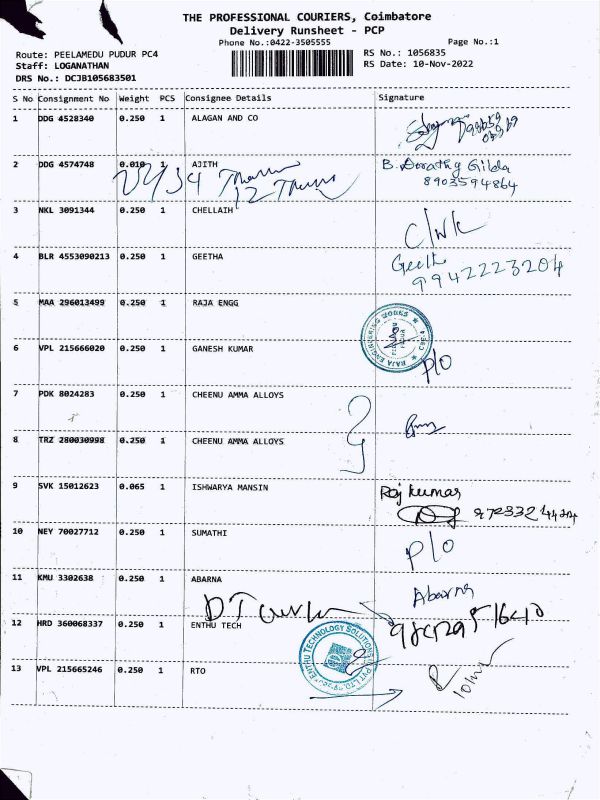 THE PROFESSIONAL COURIERS, Coimbatore
Delivery Runsheet - PCP
Phone No.:0422-3505555
Page No.:1
Route: PEELAMEDU PUDUR PC4
Staff: LOGANATHAN
DRS No.: DCJB105683501
RS No.: 1056835
RS Date: 10-Nov-2022
S No Consignment No Weight PCS Consignee Details Signature
1 DDG 4528340 0.250 1 ALAGAN AND CO
2 DDG 4574748 0.010 1 AJITH B. Dorathy Gilda
8903594864
3 NKL 3091344 0.250 1 CHELLAIH
4 BLR 4553090213 0.250 1 GEETHA Geeth
9942223204
5 MAA 296013499 0.250 1 RAJA ENGG
RAJA ENGINEERING WORKS
6 VPL 215666020 0.250 1 GANESH KUMAR P/O
7 PDK 8024283 0.250 1 CHEENU AMMA ALLOYS
8 TRZ 280030998 0.250 1 CHEENU AMMA ALLOYS
9 SVK 15012623 0.065 1 ISHWARYA MANSIN Raj kumar
10 NEY 70027712 0.250 1 SUMATHI P/O
11 KMU 3302638 0.250 1 ABARNA Abarna
12 HRD 360068337 0.250 1 ENTHU TECH
ENTHU TECHNOLOGY SOLUTIONS
13 VPL 215665246 0.250 1 RTO